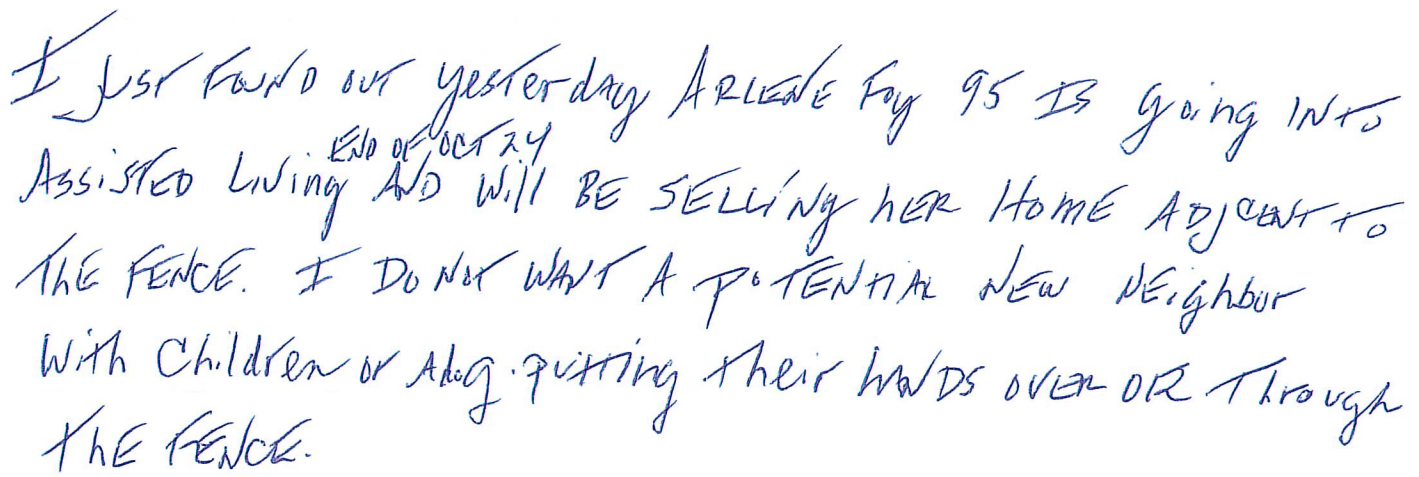 I just found out yesterday Arlene Foy 95 is going into
End of Oct 24
Assisted Living and will be selling her home adjcent to
the fence. I do not want a potential new neighbor
with children or a dog. putting their hands over or through
the fence.